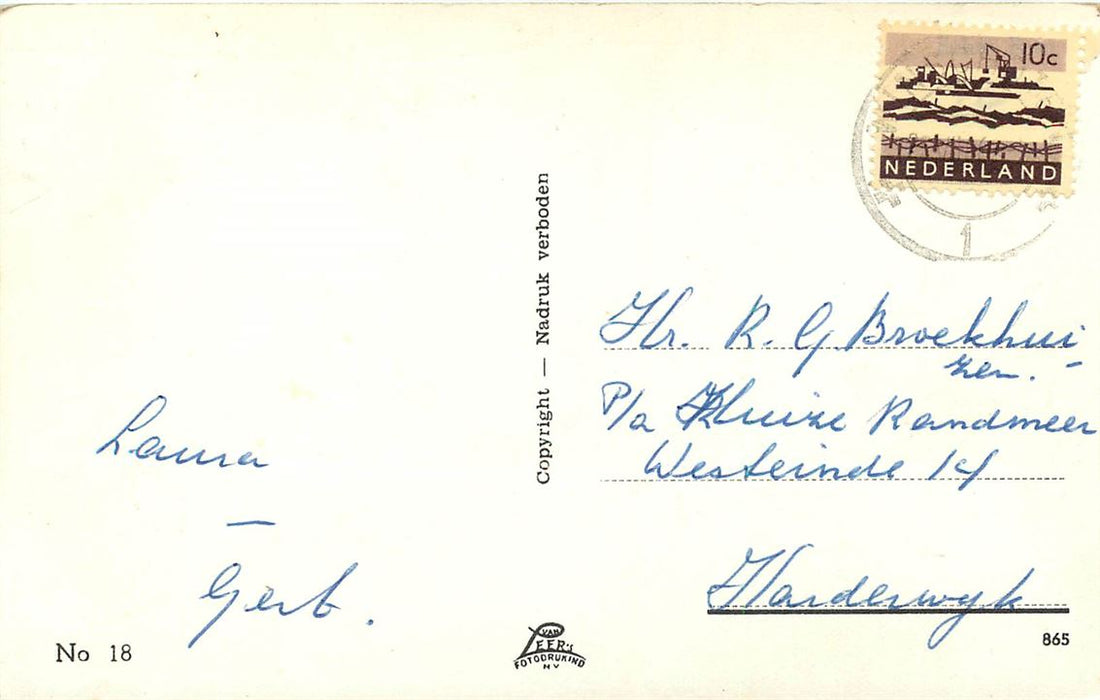 10c
NEDERLAND
1
Copyright — Nadruk verboden
Hr. R. G. Broekhui-
zen.
P/a Huize Randmeer
Westeinde 14
Harderwyk
Laura
—
Gert.
No 18
VAN
LEER's
FOTODRUKIND
NV
865